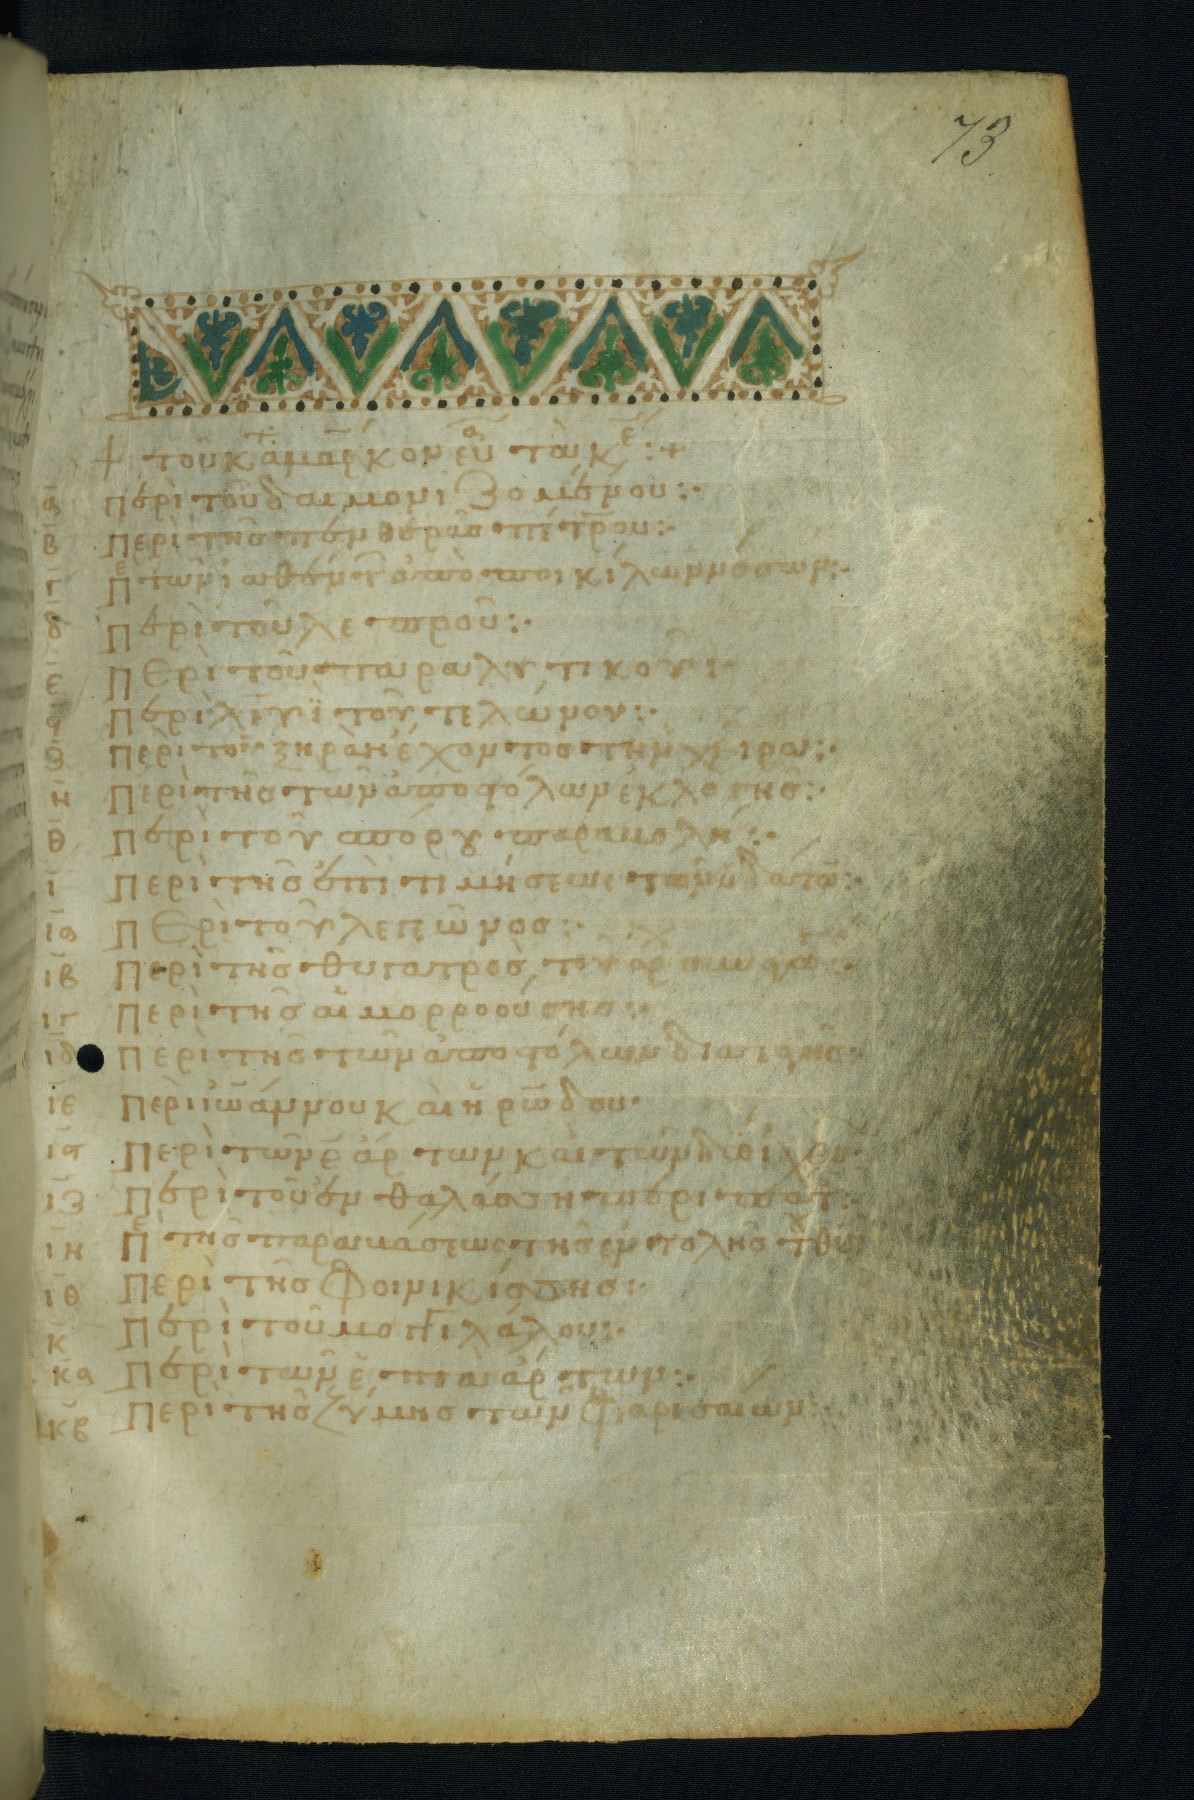 73
+ τοῦ κατὰ μάρκον εὐα τὰ κε :+
α Περὶ τοῦ δαιμονιζομένου :·
β Περὶ τῆς πενθερᾶς πέτρου :·
γ Πε τῶν ἰαθέντ ἀπὸ ποικίλων νόσων :·
δ Περὶ τοῦ λεπροῦ :·
ε Περὶ τοῦ παραλυτικοῦ :·
ϛ Περὶ λευὶ τοῦ τελώνου :·
ζ Περὶ τοῦ ξηρὰν ἔχοντος τὴν χεῖρα :·
η Περὶ τῆς τῶν ἀποστόλων ἐκλογῆς :·
θ Περὶ τοῦ σπόρου παραβολή :·
ι Περὶ τῆς ἐπιτιμήσεως τῶν ὑδάτω :·
ια Περὶ τοῦ λεγεῶνος :·
ιβ Περὶ τῆς θυγατρὸς τοῦ
ιγ Περὶ τῆς αἱμορροούσης :·
ιδ Περὶ τῆς τῶν ἀποστόλων διαταγῆς·
ιε Περὶ ἰωάννου καὶ ἡρώδου·
ιϛ Περὶ τῶν ε ἄρτων καὶ τῶν δύο ἰχθύ
ιζ Περὶ τοῦ ἐν θαλάσση περιπάτ :·
ιη Πε τῆς παραβάσεως τῆς ἐντολῆς τ θυ
ιθ Περὶ τῆς φοινικίσσης :·
κ Περὶ τοῦ μογιλάλου :·
κα Περὶ τῶν ἑπτὰ ἄρτων :·
κβ Περὶ τῆς ζύμης τῶν φαρισαίων :·